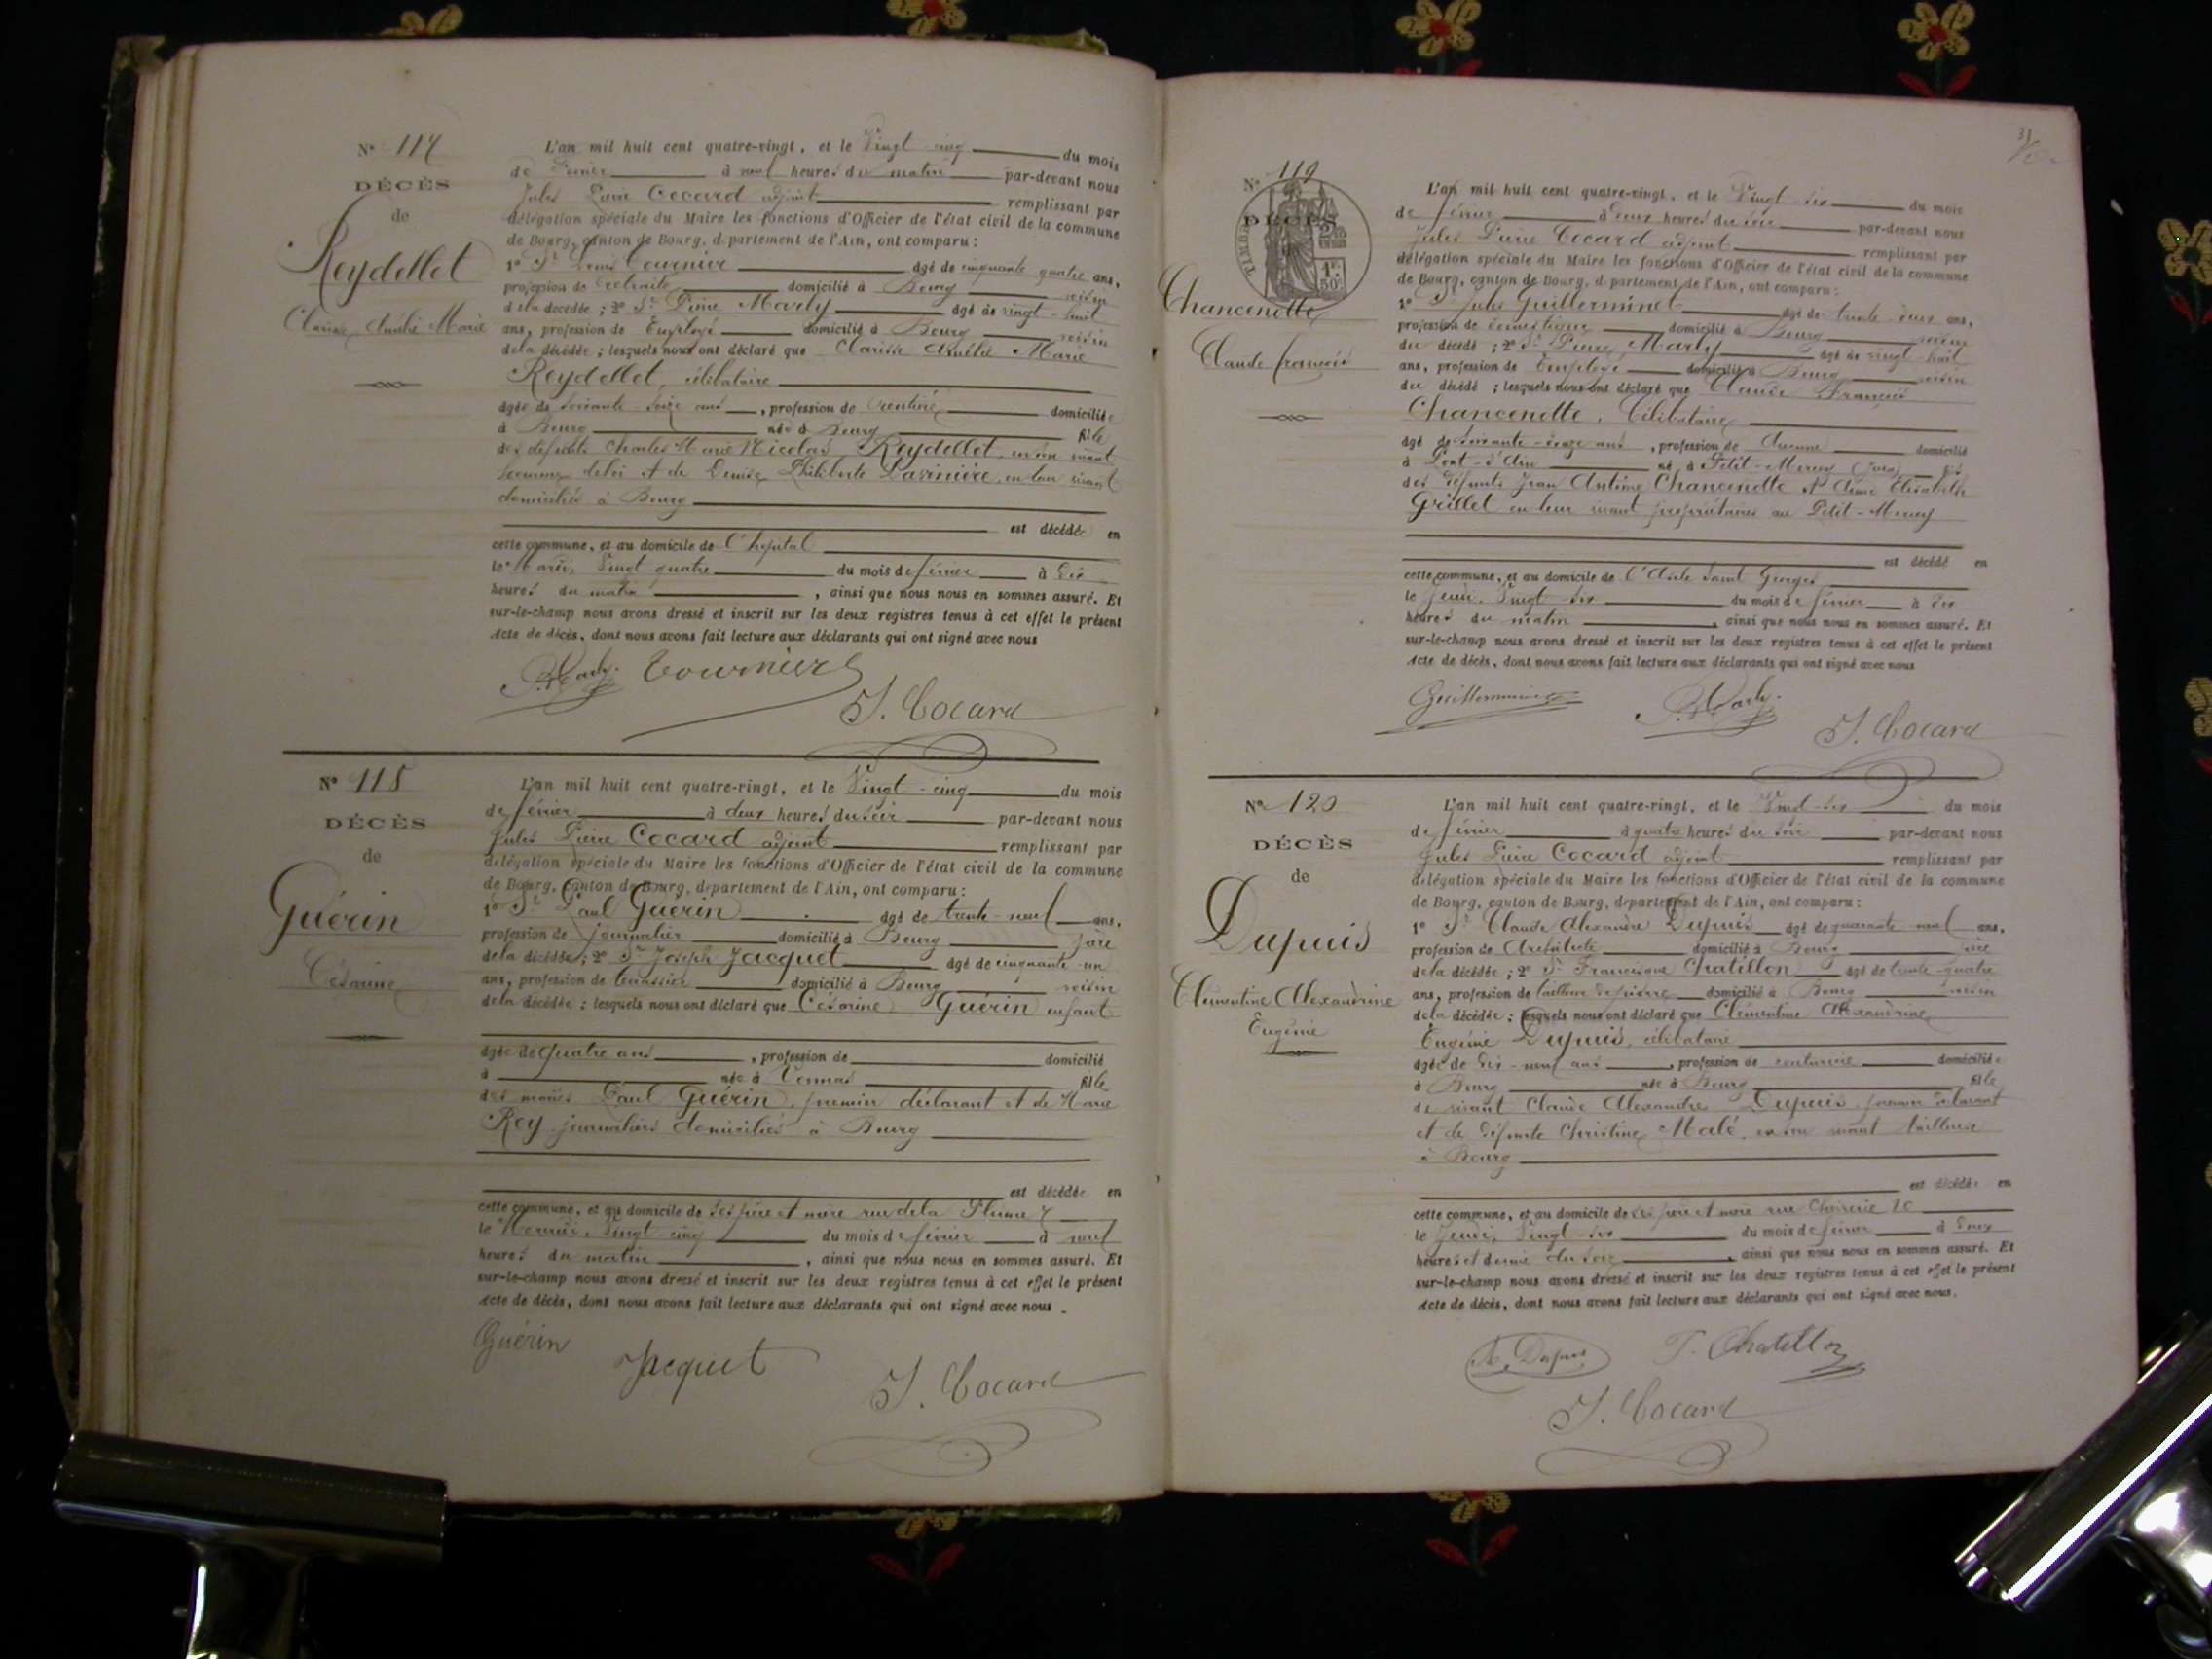 N° 117
DÉCÈS
de
Reydellet
Clarisse Amélie Marie
L'an mil huit cent quatre-vingt, et le Vingt cinq du mois
de Février à neuf heures du matin par-devant nous
Jules Pierre Cocard adjoint remplissant par
délégation spéciale du Maire les fonctions d'Officier de l'état civil de la commune
de Bourg, canton de Bourg, département de l'Ain, ont comparu :
1° Sr Louis Tournier âgé de cinquante quatre ans,
profession de retraité domicilié à Bourg voisin
de la décédée ; 2° Sr Pierre Marly âgé de vingt-huit
ans, profession de Employé domicilié à Bourg voisin
de la décédée ; lesquels nous ont déclaré que Clarisse Amélie Marie
Reydellet, célibataire
âgée de soixante-seize ans, profession de rentière domiciliée
à Bourg née à Bourg fille
des défunts Charles Marie Nicolas Reydellet, en son vivant
homme de loi et de Denise Philiberte en leur vivant
domiciliés à Bourg
est décédée en
cette commune, et au domicile de l'hôpital
le Mardi, Vingt quatre du mois de février à dix
heures du matin, ainsi que nous nous en sommes assuré. Et
sur-le-champ nous avons dressé et inscrit sur les deux registres tenus à cet effet le présent
Acte de décès, dont nous avons fait lecture aux déclarants qui ont signé avec nous
P. Marly. Tournier
J. Cocard
N° 118
DÉCÈS
de
Guérin
Césarine
L'an mil huit cent quatre-vingt, et le Vingt-cinq du mois
de février à deux heures du soir par-devant nous
Jules Pierre Cocard adjoint remplissant par
délégation spéciale du Maire les fonctions d'Officier de l'état civil de la commune
de Bourg, canton de Bourg, département de l'Ain, ont comparu :
1° Sr Paul Guérin âgé de trente-neuf ans,
profession de journalier domicilié à Bourg père
de la décédée ; 2° Sr Joseph Jacquet âgé de cinquante-un
ans, profession de domicilié à Bourg voisin
de la décédée ; lesquels nous ont déclaré que Césarine Guérin enfant
âgée de quatre ans, profession de domicilié
à née à fille
des mariés Paul Guérin, premier déclarant et de Marie
Rey journaliers domiciliés à Bourg
est décédée en
cette commune, et au domicile de ses père et mère rue de la Plume 7
le Mercredi, Vingt-cinq du mois de février à neuf
heures du matin, ainsi que nous nous en sommes assuré. Et
sur-le-champ nous avons dressé et inscrit sur les deux registres tenus à cet effet le présent
Acte de décès, dont nous avons fait lecture aux déclarants qui ont signé avec nous
Guérin
Jacquet
J. Cocard
N° 119
DÉCÈS
TIMBRE
1F. 50c
Chancenotte
Claude françois
L'an mil huit cent quatre-vingt, et le Vingt-six du mois
de février à deux heures du soir par-devant nous
Jules Pierre Cocard adjoint remplissant par
délégation spéciale du Maire les fonctions d'Officier de l'état civil de la commune
de Bourg, canton de Bourg, département de l'Ain, ont comparu :
1° Sr Jules Guillerminet âgé de trente-deux ans,
profession de domestique domicilié à Bourg voisin
du décédé ; 2° Sr Pierre Marly âgé de vingt-huit
ans, profession de Employé domicilié à Bourg voisin
du décédé ; lesquels nous ont déclaré que Claude François
Chancenotte, Célibataire
âgé de ans, profession de Aucune domicilié
à Pont-d'Ain né à Petit-Mercey (Jura) fils
des défunts Jean Antoine Chancenotte et Anne Elisabeth
Grillet en leur vivant propriétaires au Petit-Mercey
est décédé en
cette commune, et au domicile de l'Asile Saint Georges
le Jeudi, Vingt-six du mois de février à dix
heures du matin, ainsi que nous nous en sommes assuré. Et
sur-le-champ nous avons dressé et inscrit sur les deux registres tenus à cet effet le présent
Acte de décès, dont nous avons fait lecture aux déclarants qui ont signé avec nous
Guillerminet P. Marly.
J. Cocard
N° 120
DÉCÈS
de
Dupuis
Clémentine Alexandrine
Eugénie
L'an mil huit cent quatre-vingt, et le Vingt-six du mois
de février à quatre heures du soir par-devant nous
Jules Pierre Cocard adjoint remplissant par
délégation spéciale du Maire les fonctions d'Officier de l'état civil de la commune
de Bourg, canton de Bourg, département de l'Ain, ont comparu :
1° Sr Claude Alexandre Dupuis âgé de quarante-neuf ans,
profession de Architecte domicilié à Bourg père
de la décédée ; 2° Sr Francisque Chatillon âgé de trente-quatre
ans, profession de tailleur de pierre domicilié à Bourg voisin
de la décédée ; lesquels nous ont déclaré que Clémentine Alexandrine
Eugénie Dupuis, célibataire
âgée de dix-neuf ans, profession de couturière domiciliée
à Bourg née à Bourg fille
de vivant Claude Alexandre Dupuis premier déclarant
et de défunte Christine Malé, en son vivant tailleuse
à Bourg
est décédée en
cette commune, et au domicile de ses père et mère rue
le Jeudi, Vingt-six du mois de février à deux
heures et demie du soir, ainsi que nous nous en sommes assuré. Et
sur-le-champ nous avons dressé et inscrit sur les deux registres tenus à cet effet le présent
Acte de décès, dont nous avons fait lecture aux déclarants qui ont signé avec nous.
A. Dupuis F. Chatillon
J. Cocard